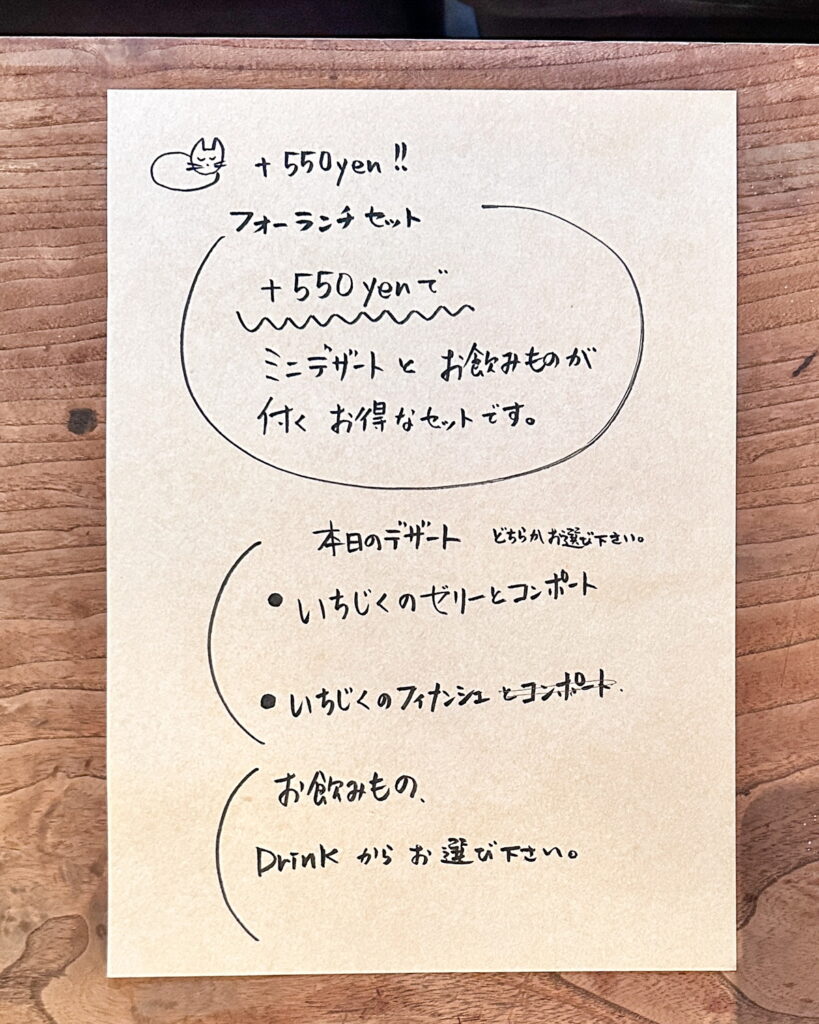 +550yen!!
フォーランチセット
+550yenで
ミニデザートと お飲みものが
付く お得なセットです。
本日のデザート どちらかお選び下さい。
• いちじくのゼリーとコンポート
• いちじくのフィナンシェとコンポート.
お飲みもの、
Drink から お選び下さい。